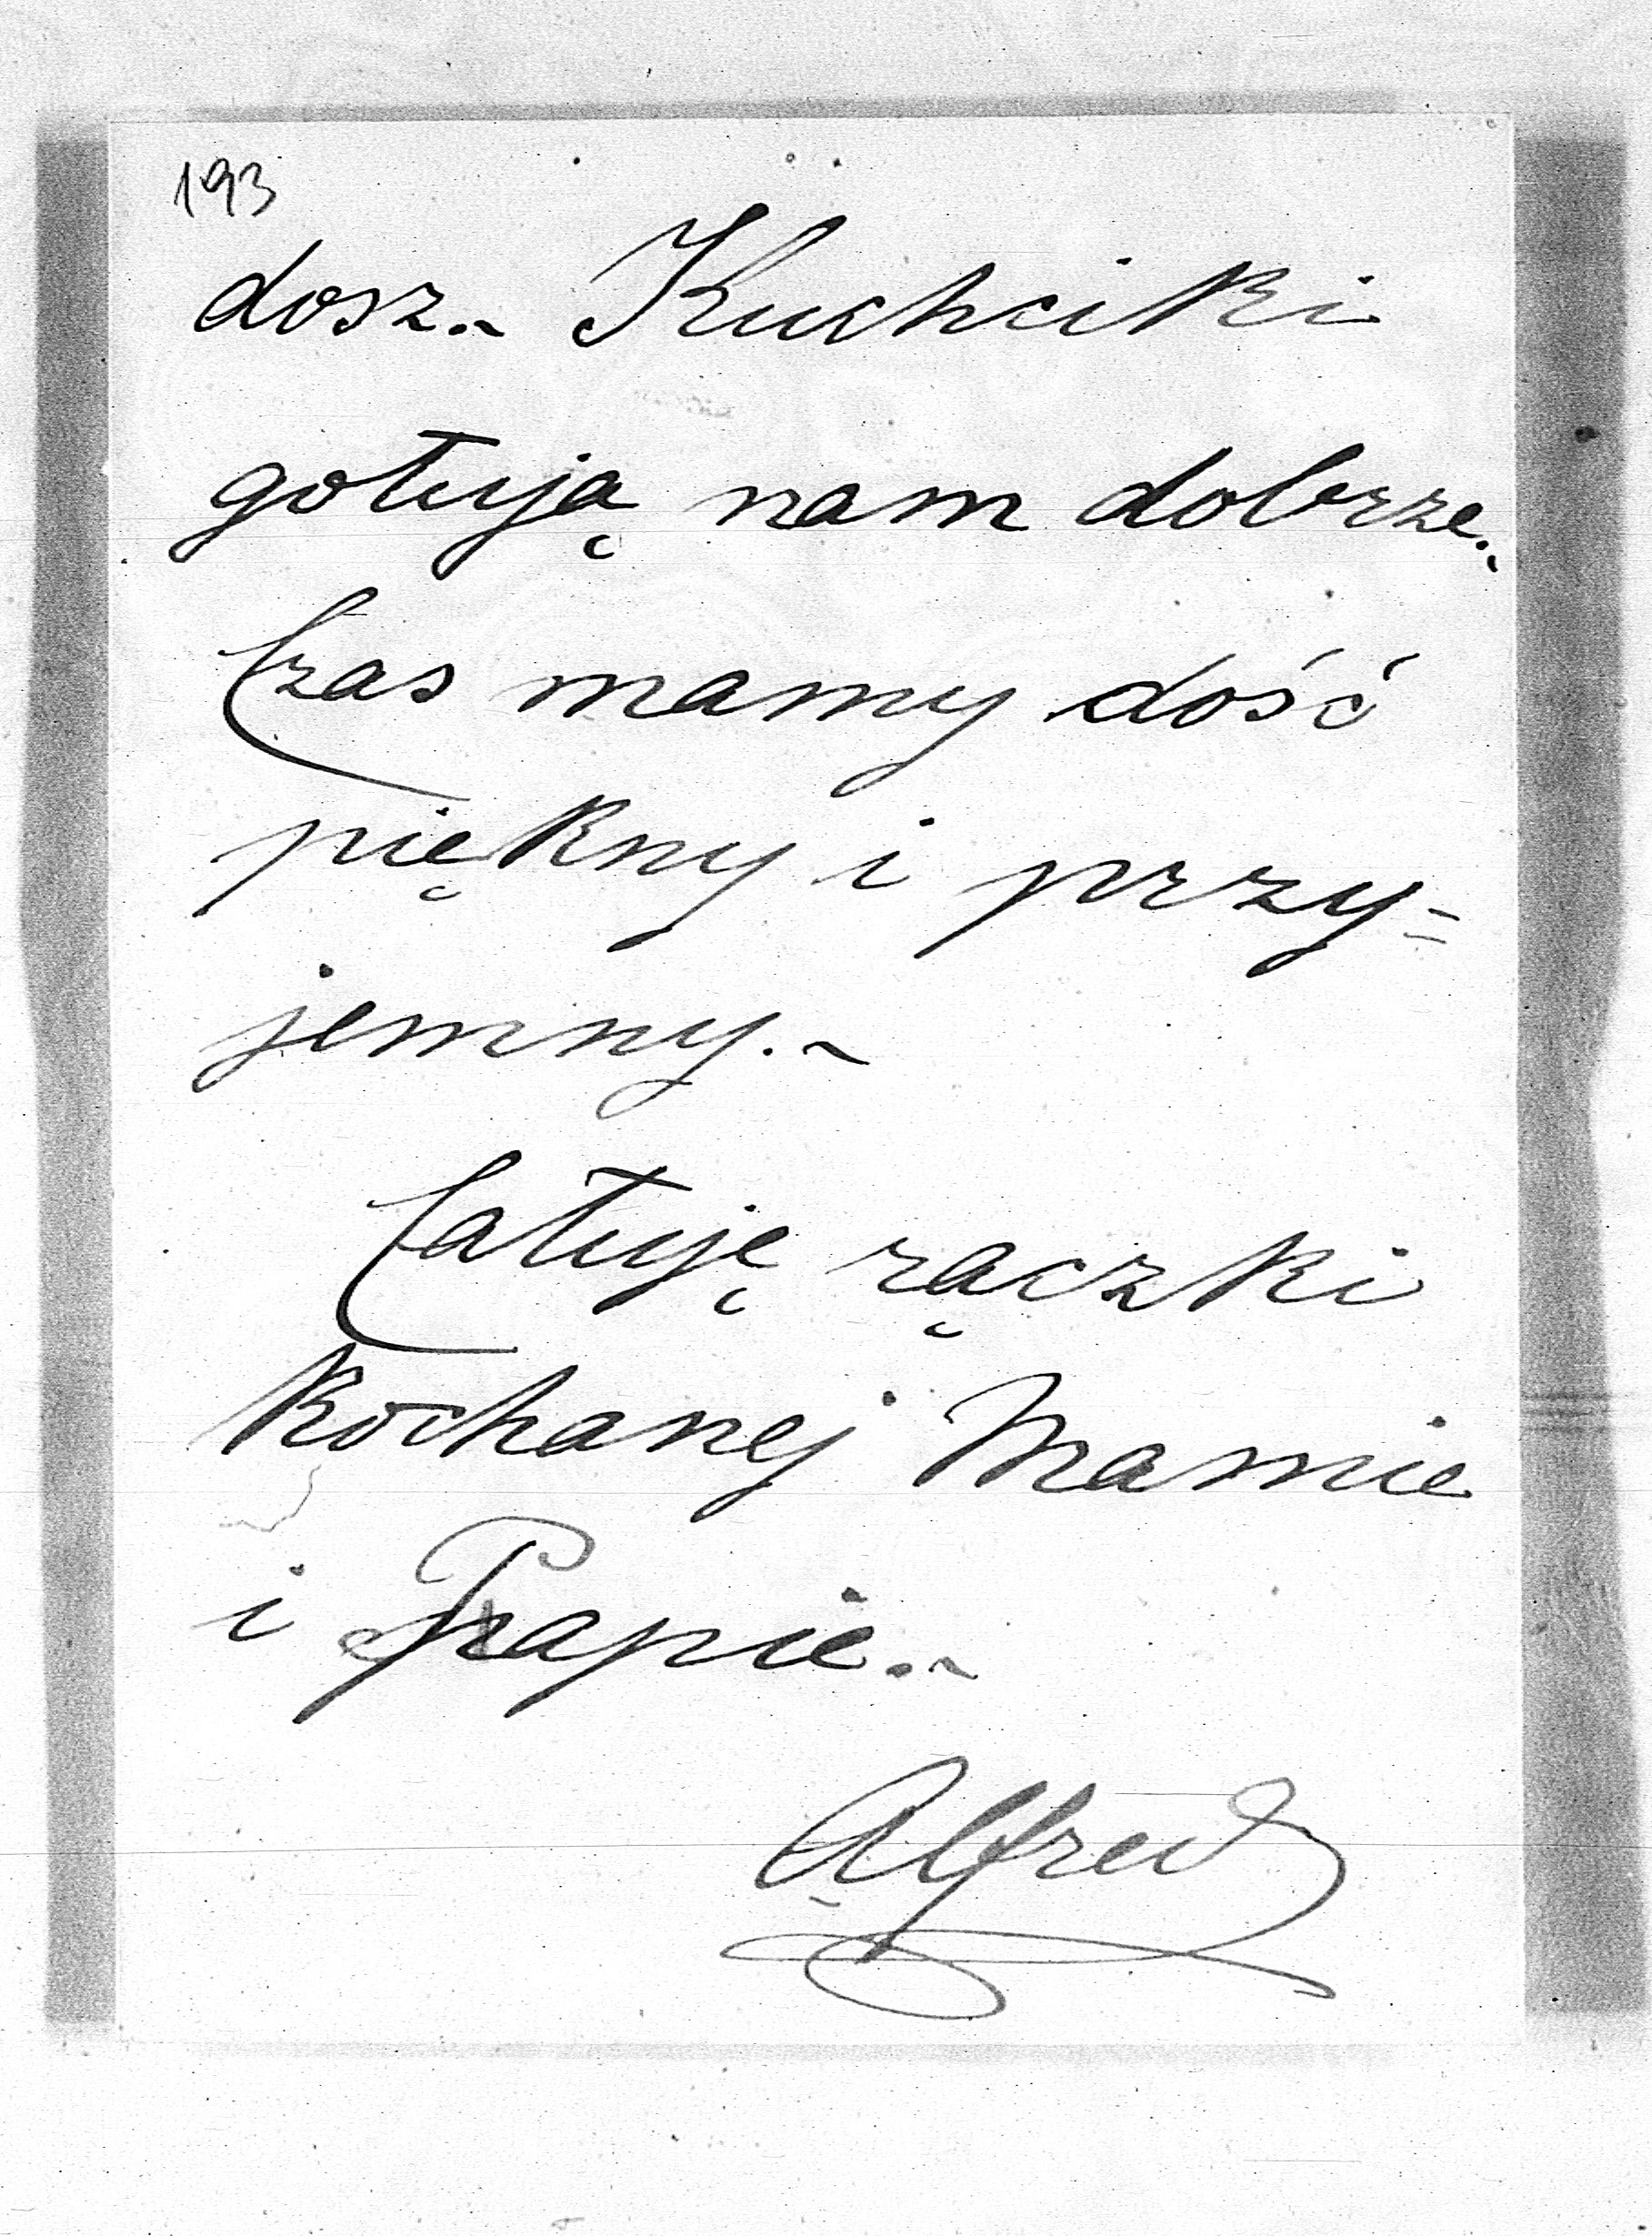 193
dosz.- Kuchciki
gotują nam dobrze.-
Czas mamy dość
piękny i przy=
jemny.-
Całuję rączki
Kochanej Mamie
i Papie.-
Alfred